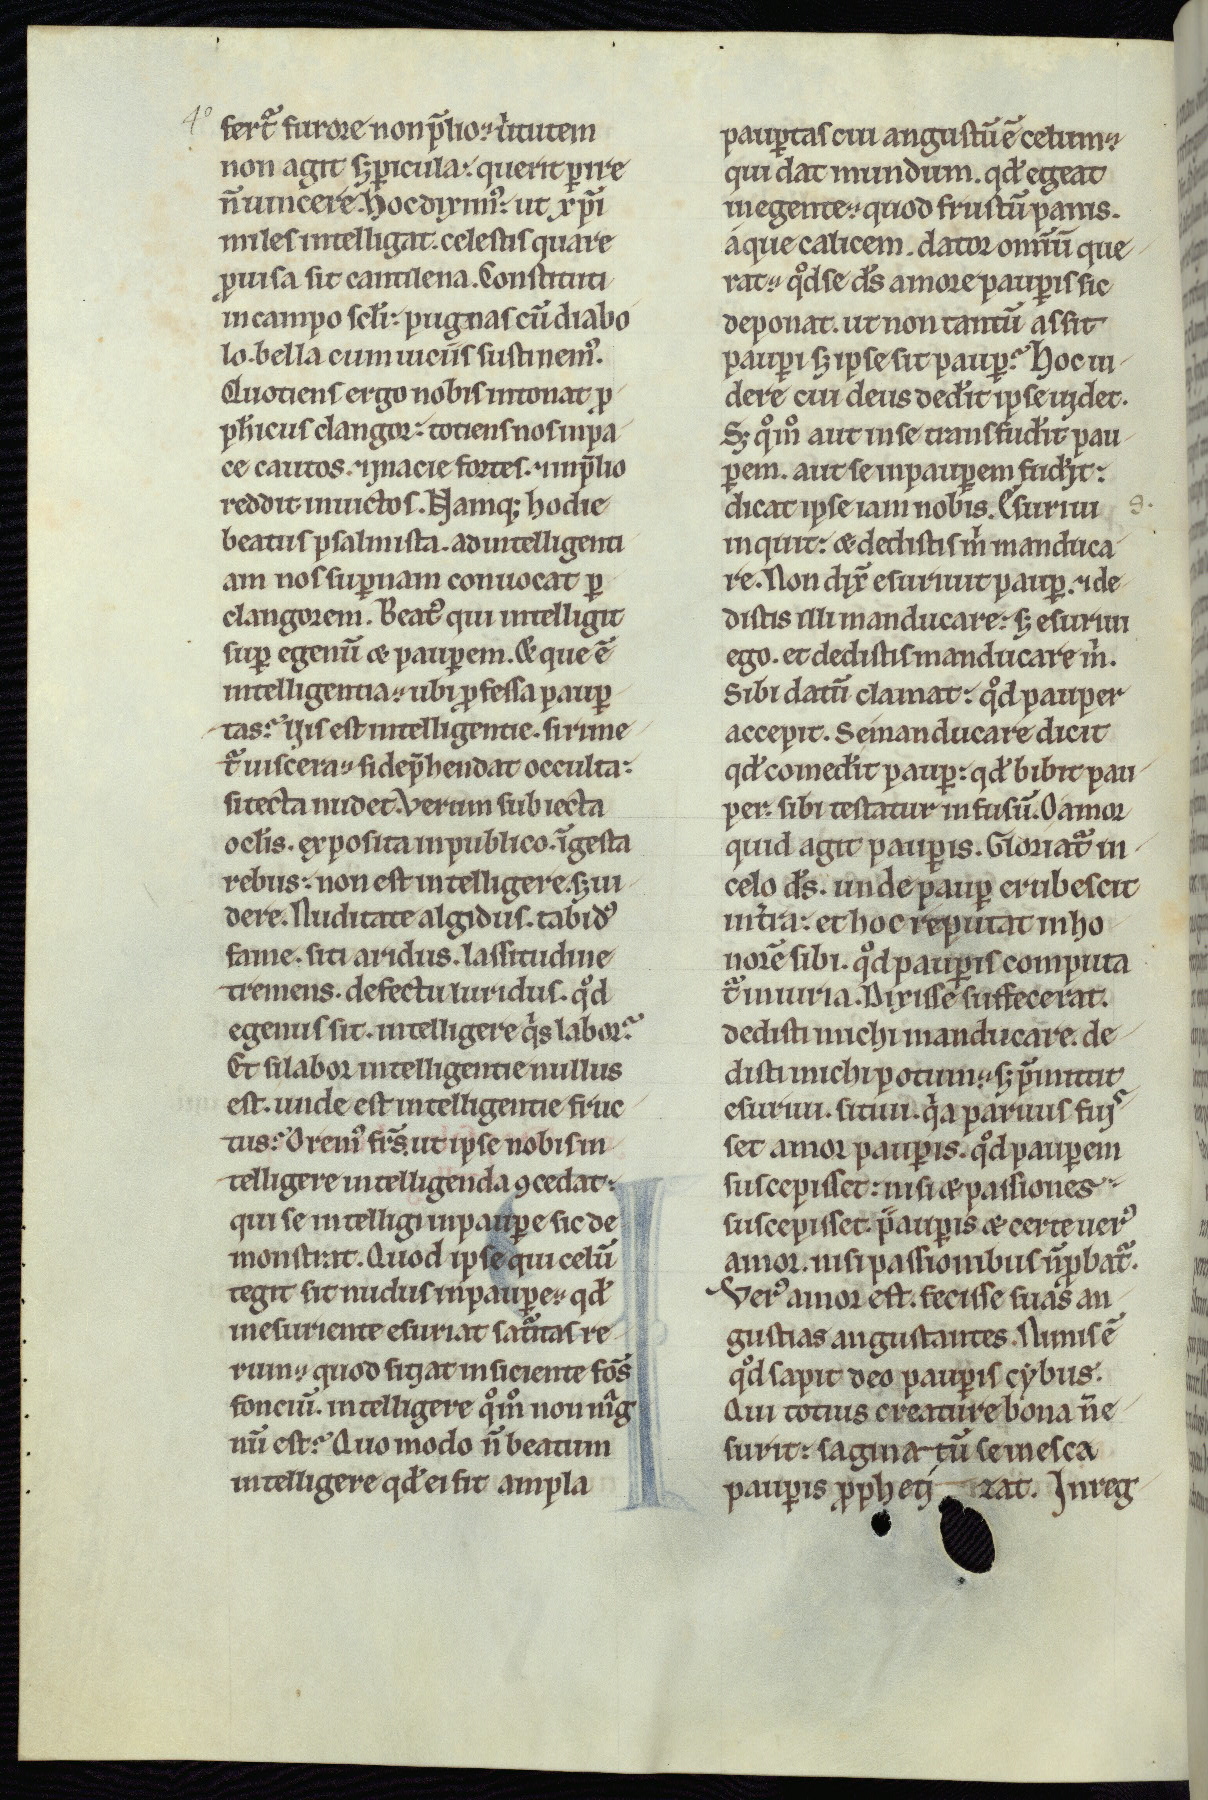 4o
fert᷑ furore non p̄lio· uͥtutem
non agit sꝫ picula: querit ꝑire
n̄ uincere. hoc diximꝰ: ut xp̄i
miles intelligat. celestis quare
ꝓuisa sit cantilena. Constituti
in campo scl̄i: pugnas cū diabo
lo. bella cum uiciis sustinemꝰ.
Quotiens ergo nobis intonat ꝓ
ph̄icus clangor: totiens nos in pa
ce cautos. ⁊ in acie fortes. ⁊ in p̄lio
reddit inuictos. Namqꝫ hodie
beatus psalmista. ad intelligenti
am nos suꝑnam conuocat ꝑ
clangorem. Beatꝰ qui intelligit
suꝑ egenū & pauꝑem. & que ē
intelligentia· ubi ꝓfessa pauꝑ
tas? Vis est intelligentie. si rime
t᷑ uiscera· si dep̄hendat occulta:
si tecta nudet. Verum subiecta
ocl̄is. exposita in publico. īgesta
rebus: non est intelligere. sꝫ ui
dere. Nuditate algidus. tabidꝰ
fame. siti aridus. lassitudine
tremens. defectu luridus. qͦd
egenus sit. intelligere qͥs labor?
Et si labor intelligentie nullus
est. unde est intelligentie fruc
tus? Oremꝰ fr̄s. ut ipse nobis in
telligere intelligenda ꝯcedat:
qui se intelligi in pauꝑe sic de
monstrat. Quod ipse qui celū
tegit sit nudus in pauꝑe· qd̄
in esuriente esuriat sat᷑itas re
rum· quod sitiat in siciente fōs
fonciū. intelligere qͦm̊ non mͣg
nū est? Quo modo n̄ beatum
intelligere qd̄ ei sit ampla
pauꝑtas cui angustū ē celum·
qui dat mundum. qd̄ egeat
in egente· quod frustū panis.
aque calicem. dator omniū que
rat· qͦd se d̄s amore pauꝑis sic
deponat. ut non tantū assit
pauꝑi sꝫ ipse sit pauꝑ? Hoc ui
dere cui deus ded̄it ipse uidet.
Sꝫ qͦm̊ aut in se transfud̄it pau
ꝑem. aut se in pauꝑem fud̄it:
dicat ipse iam nobis. Esuriui
inquit: & dedistis mͥ manduca
re. Non dix̄ esuriuit pauꝑ. ⁊ de
distis illi manducare: sꝫ esuriui
ego. et dedistis manducare mͥ.
Sibi datū clamat: qͦd pauper
accepit. Se manducare dicit
qd̄ comed̄it pauꝑ: qd̄ bibit pau
per. sibi testatur infusū. O amor
quid agit pauꝑis. Gloriat᷑ in
celo d̄s. unde pauꝑ erubescit
in tͥra: et hoc reputat in ho
norē sibi. qͦd pauꝑis computa
t᷑ iniuria. Dixisse suffecerat.
dedisti michi manducare. de
disti michi potum· sꝫ p̄mittit
esuriui. sitiui. qͥa paruus fuis
set amor pauꝑis. qͦd pauꝑem
suscepisset: nisi & passiones
suscepisset. pauꝑis & certe uerꝰ
amor. nisi passionibus n̄ ꝓbat᷑.
Verꝰ amor est. fecisse suas an
gustias angustantes. Nimis ē
qͦd sapit deo pauꝑis cybus.
Qui totius creature bona n̄ e
surit: saginatū se in esca
pauꝑis ꝓphetirat. In reg